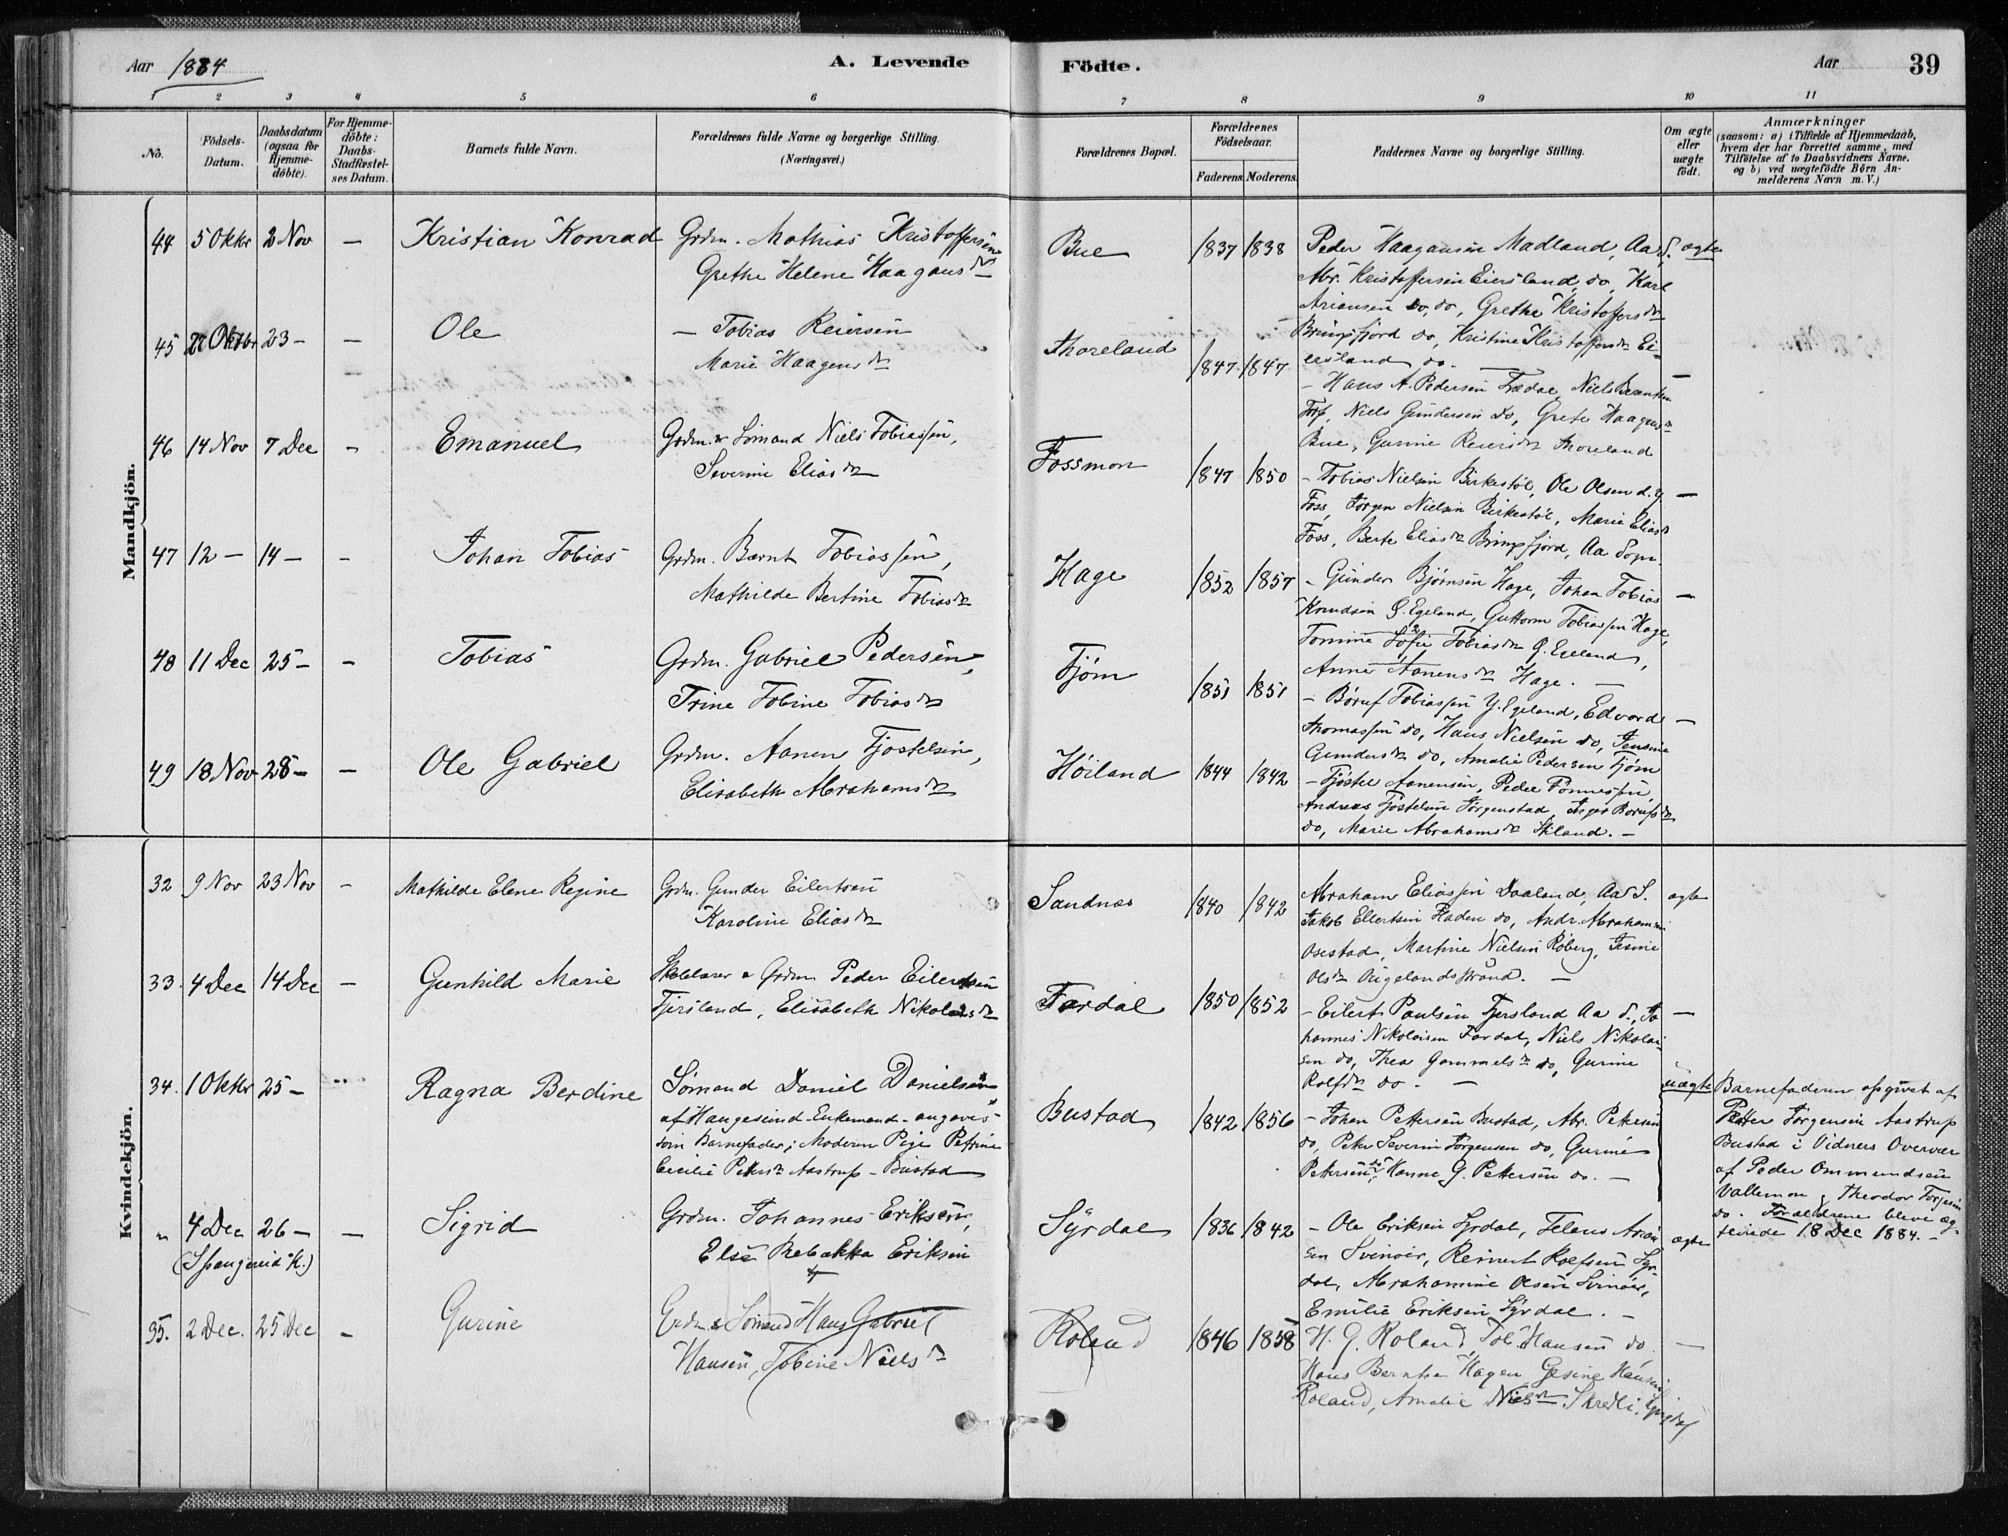 Aar 1884
A. Levende
Födte.
Aar
39
1 2 3 4 5 6 7 8 9 10 11
No.
Födsels-Datum.
Daabsdatum (ogsaa for Hjemme-döbte).
For Hjemme-döbte: Daabs-Stadfæstel-ses Datum.
Barnets fulde Navn.
Forældrenes fulde Navne og borgerlige Stilling. (Næringsvei.)
Forældrenes Bopæl.
Forældrenes Födselsaar.
Faderens. Moderens.
Faddernes Navne og borgerlige Stilling.
Om ægte eller uægte födt.
Anmærkninger
(saasom: a) i Tilfælde af Hjemmedaab,
hvem der har forrettet samme, med
Tilföielse af to Daabsvidners Navne.
og b) ved uægtefödte Börn An-
melderens Navn m. V.)
Mandkjön.
44 5 Oktbr 2 Nov — Kristian Konrad Grdm. Mathias Kristoffersen
Grethe Helene Haagensdr
Bue 1837 1838 Peder Haagensen Madland, Aa S. ægte
Abr. Kristoffersen Eiersland, do, Karl
Ariansen do, do, Grethe Kristoffersdr
Bringsfjord do, Kristine Kristoffersdr Ei-
ersland do. —
45 22 Oktbr 23 — — Ole — Tobias Reiersen
Marie Haagensdr
Thoreland 1847 1847 —
— Hans A. Pedersen Trædal, Niels Berntsen
Torp, Niels Gundersen do, Grete Haagensdr
Bue, Gurine Reiersdr Thoreland
46 14 Nov 7 Dec — Emanuel Grdm. & Sömand Niels Tobiassen,
Severine Eliasdr
Fossmon 1847 1850
— Tobias Nielsen Birkestöl, Ole Olsen d. y. —
Foss, Jörgen Nielsen Birkestöl, Marie Eliasdr
Foss, Berte Eliasdr Bringsfjord, Aa Sogn.
47 12 — 14 — — Johan Tobias Grdm. Bernt Tobiassen,
Mathilde Bertine Tobiasdr
Hage 1852 1857
— Gunder Bjørnsen Hage, Johan Tobias —
Knudsen Ö. Egeland, Guttorm Tobiassen Hage,
Tomine Sofie Tobiasdr Ö. Egeland,
Anne Aanensdr Hage. —
48 11 Dec 25 — — Tobias Grdm. Gabriel Pedersen,
Trine Tobine Tobiasdr
Tjøm 1851 1851
— Børuf Tobiassen Y. Egeland, Edvard —
Thomassen do, Hans Nielsen do, Jensine
Gundersdr do, Amalie Pedersen Tjøm
49 18 Nov 28 — — Ole Gabriel Grdm. Aanen Tjøstelsen,
Elisabeth Abrahamsdr
Høiland 1844 1842
— Tjøstel Aanensen, Peder Tønnessen,
Andreas Tjøstelsen Jørgenstad, Inger Børufsdr
do, Marie Abrahamsdr Skiland. —
Kvindekjön.
32 9 Nov 23 Nov — Mathilde Elene Regine Grdm. Gunder Eilertsen
Karoline Eliasdr
Sandnæs 1840 1842 Abraham Eliassen Daaland, Aa S. ægte
Jakob Ellertsen Haden do, Andr. Abrahamsen
Osestad, Martine Nielsen Röberg, Jesine
Olsdr Vigelandsstrand. —
33. 4 Dec 14 Dec — Gunhild Marie Skolelærer & Grdm Peder Eilertsen
Tjersland, Elisabeth Nikolaisdr
Fardal 1850 1852
— Eilert Paulsen Tjersland Aa S., Jo- —
hannes Nikolaisen Fardal, Niels Nikolai-
sen do, Thea Gammelsdr do, Gurine
Rolfsdr do. —
34. 1 Oktbr 25 — Ragna Berdine Sömand Daniel Danielsen
af Haugesund - Enkemand - angaves
som Barnefader; Moderen Pige Petrine
Cecilie Petersdr Aastrup - Bustad
Bustad 1842 1856
— Johan Pettersen Bustad, Abr. Petersen
do, Peter Severin Jørgensen do, Gurine
Petersen do, Hanne G. Pettersen do. —
uægte Barnefaderen opgivet af
Petter Jörgensen Aastrup
Bustad i Vidners Overvær
af Peder Ommundsen
Vallemon & Theodor Torjesen
do. Forældrene bleve æg-
teviede 18 Dec 1884. —
" 4 Dec 26 — — Sigrid Grdm. Johannes Eriksen,
(Spangereid K.) Else Rebekka Eriksen
Syrdal 1836 1842 — Ole Eriksen Syrdal, Telena Arian- ægte
sen Svinøer, Reinert Rolfsen Syr-
dal, Abrahamine Olsen Svinøer,
Emilie Eriksen Syrdal. —
35. 2 Dec. 25 Dec — Gurine Grdm & Sömand Hans Gabriel
Hansen, Tobine Nielsdr
Roland 1846 1858 H. G. Roland, Tob. Hansen do. —
Hans Berntsen Hagen Gesine Hansen
Roland, Amalie Nielsdr. Skredli.